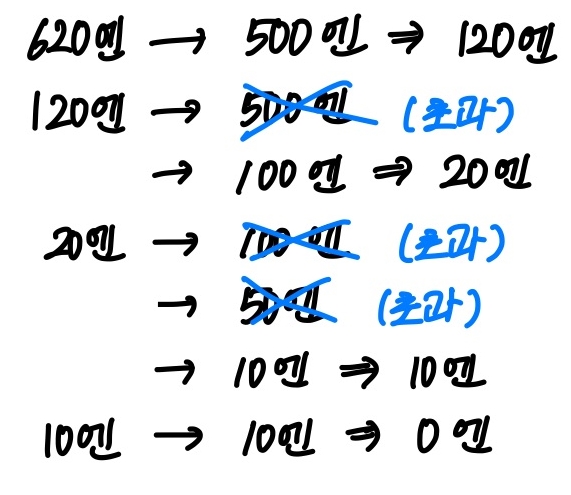 620엔 → 500엔 ⇒ 120엔
120엔 → 500엔 (초과)
→ 100엔 ⇒ 20엔
20엔 → 100엔 (초과)
→ 50엔 (초과)
→ 10엔 ⇒ 10엔
10엔 → 10엔 ⇒ 0엔